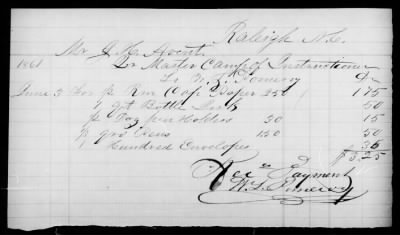 Raleigh N.C.
Mr J. H. Avent
1861 For Master Camp of Instruction
To W. L. Pomeroy Dr
June 3 For ½ Rm Cap Paper 350 175
1 qt Bottle Ink 50
½ Doz pen Holders 30 15
½ gro Pens 150 50
Hundred Envelopes 35
$ 3.25
Rec Payment
W. L. Pomeroy